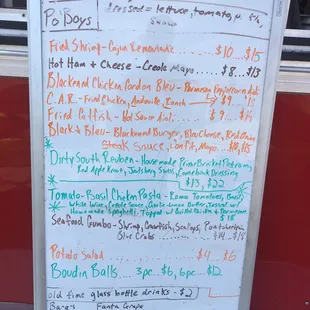 Po'Boys
dressed = lettuce, tomato,
Fried Shrimp - Cajun Remoulade
... $10 ... $15
Hot Ham + Cheese - Creole Mayo .... $8 ... $13
Blackened Chicken Cordon Bleu - Parmesan Peppercorn
C.A.R. - Fried Chicken, Andouille, Ranch
Fried Catfish - Hot Sauce Aioli
Black & Bleu - Blackened Burger, Bleu Cheese, Red Onion
Steak Sauce, Confit, Mayo
Dirty South Reuben - Housemade Prime Brisket Pastrami,
Red Apple Kraut, Jarlsberg Swiss, Comeback Dressing
$13, $22
Tomato-Basil Chicken Pasta - Roma Tomatoes, Basil,
White Wine, Creole Sauce, Garlic-Lemon Butter, Tossed w/
Homemade Spaghetti. Topped w/ & Parmesan
Seafood Gumbo - Shrimp, Crawfish, Scallops,
Blue Crabs
Potato Salad ... $4 ... $6
Boudin Balls .... 3pc. $6, 6pc. $12
old time glass bottle drinks - $2
Barq's
Fanta Grape